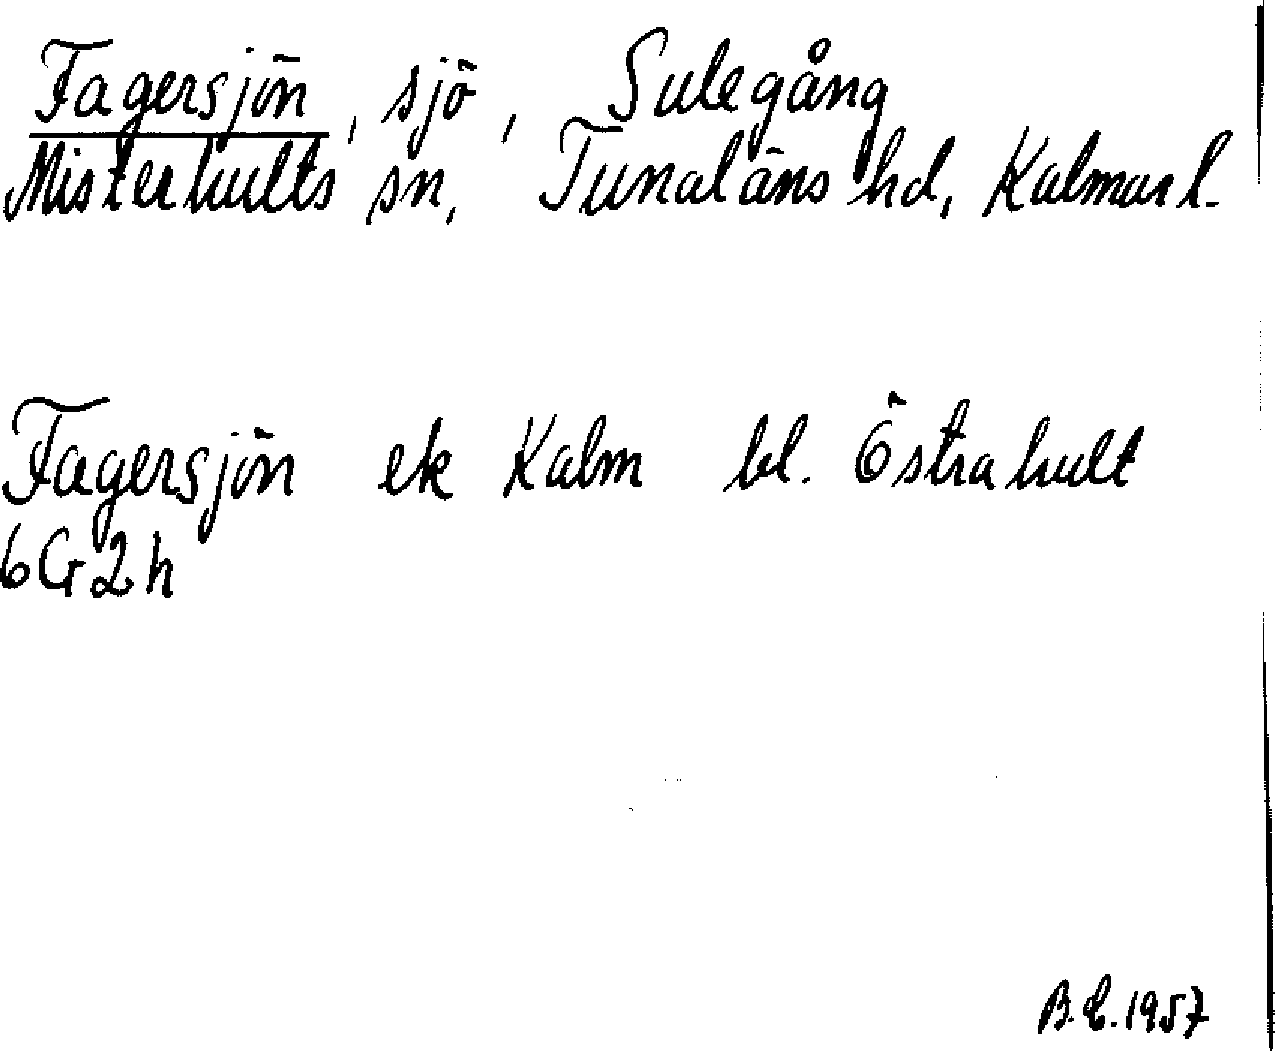 Fagersjön, sjö, Sulegång
Misterhults sn, Tunaläns hd, Kalmar l.
Fagersjön ek Kalm bl. Östrahult
6G2h
B.E.1957